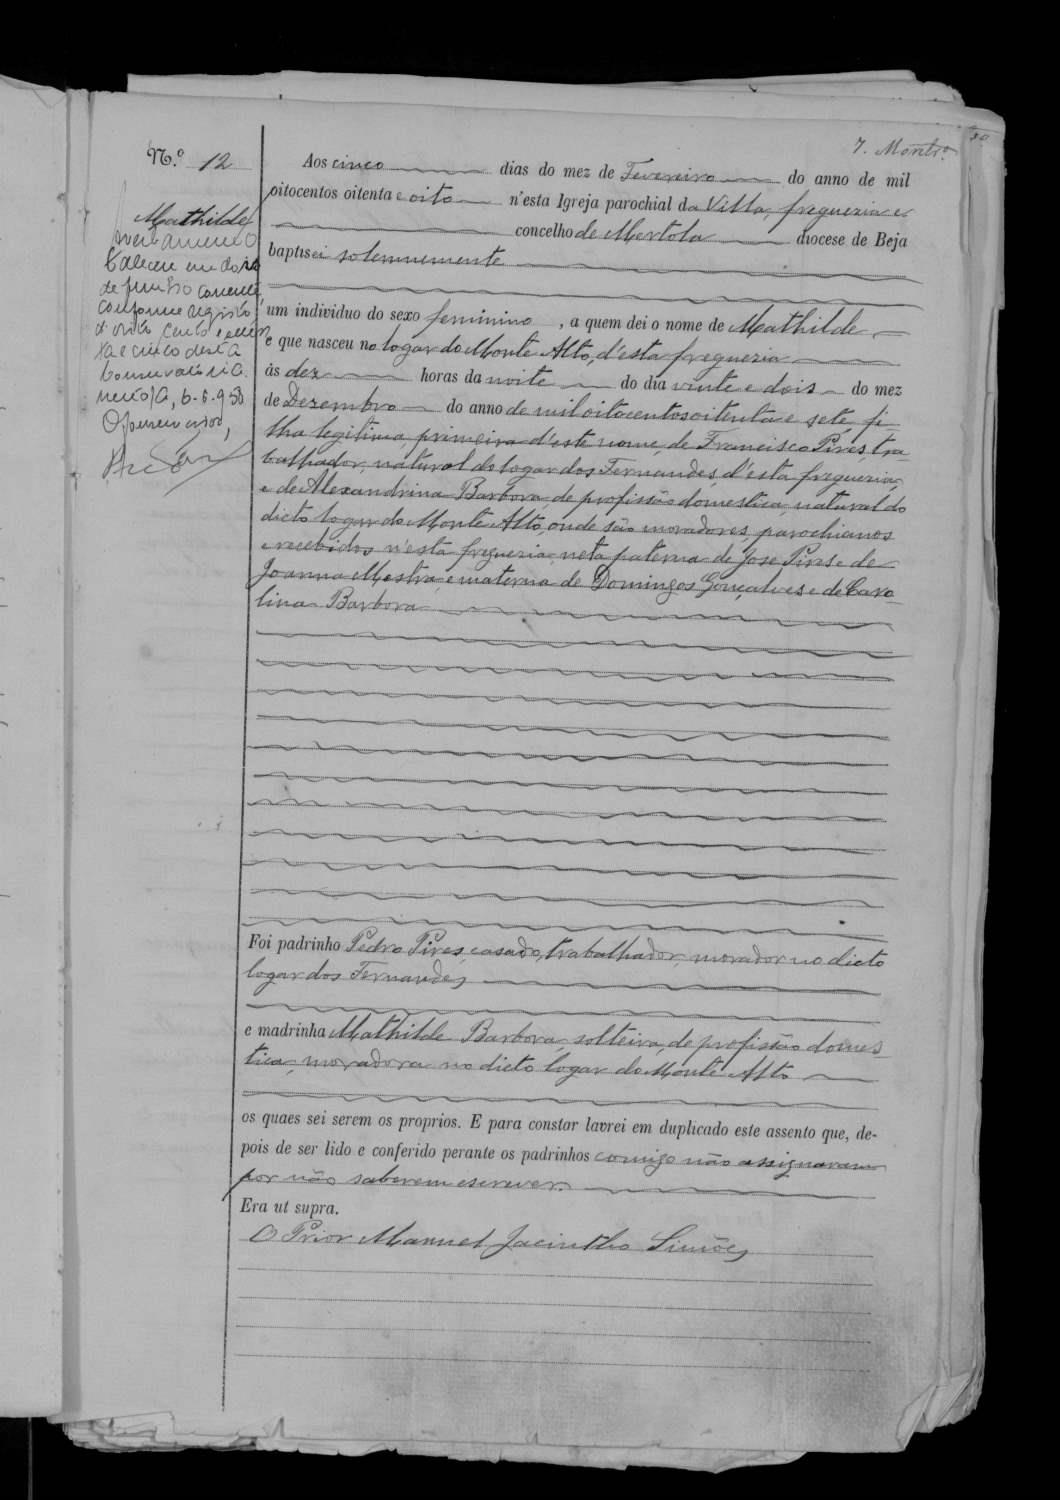 7. Montro.
N.º 12
Mathilde
Aos cinco dias do mez de Fevereiro do anno de mil
oitocentos oitenta e oito n'esta Igreja parochial da Villa, freguezia e
concelho de Mertola diocese de Beja
baptisei solemnemente
um individuo do sexo feminino, a quem dei o nome de Mathilde
e que nasceu no logar do Monte Alto, d'esta freguezia
ás dez horas da noite do dia vinte e dois do mez
de Dezembro do anno de mil oitocentos oitenta e sete, fi-
lha legitima, primeira d'este nome, de Francisco Pires, tra-
balhador, natural do logar dos Fernandes, d'esta freguezia,
e de Alexandrina Barbora, de profissão domestica, natural do
dicto logar do Monte Alto, onde são moradores, parochianos
e recebidos n'esta freguezia, neta paterna de José Pires e de
Joanna Mestra, e materna de Domingos Gonçalves e de Caro-
lina Barbora
Averbamento
Faleceu em dois
de junho corrente,
conforme registo
cento e
ta e cinco desta
Conservatória.
Mertola, 6-6-950
O conservador,
Foi padrinho Pedro Pires, casado, trabalhador, morador no dicto
logar dos Fernandes,
e madrinha Mathilde Barbora, solteira, de profissão domes-
tica, moradora no dicto logar do Monte Alto
os quaes sei serem os proprios. E para constar lavrei em duplicado este assento que, de-
pois de ser lido e conferido perante os padrinhos comigo não assignaram
por não saberem escrever.
Era ut supra.
O Prior Manuel Jacintho Simões